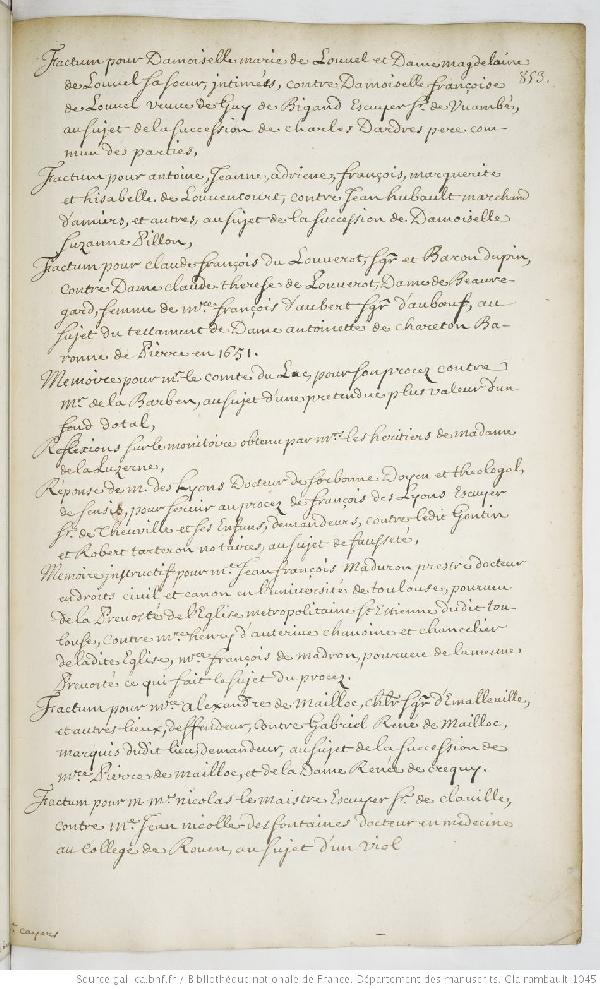 853.
Factum pour Damoiselle marie de Louvel et Dame magdelaine
de Louvel sa soeur, intimées, contre Damoiselle françoise
de Louvel veuve de Guy de Bigand Escuyer Sr. de
au sujet de la succession de charles Dardres pere com-
mun des parties,
Factum pour antoine, Jeanne, adriene, françois, marguerite
et hisabelle de Louvencourt, contre Jean hubault marchand
d'amiens, et autres, au sujet de la succession de Damoiselle
Suzanne Pillon,
Factum pour claude françois du Louverot, Sgr. et Baron dupin,
contre Dame claude therese de Louverot, Dame de Beaure-
gard, femme de mre. françois d'aubert Sgr. d'auboeuf, au
sujet du testament de Dame antoinette de chareton Ba-
ronne de Pierre en 1651.
Memoires pour mr. le comte du Luc, pour son procez contre
mr. de la Barben, au sujet d'une pretendue plus valeur d'un
fond dotal,
Reflexions sur le monitoire obtenu par mrs. les heritiers de madame
de la Luzerne,
Réponse de m. des Lyons Docteur de Sorbonne Doyen et theologal,
de Senlis, pour servir au procez de françois des Lyons Escuyer
Sr. de Theuville et ses Enfans, demandeurs, contre ledit Gentin
et Robert tarteron notaires, au sujet de fausseté,
Memoire instructif pour mr. Jean françois Maduron prestre docteur
en droits civil et canon en l'université de toulouse, pourveu
de la Prevosté de l'Eglise metropolitaine St. Estienne dudit tou-
louse, contre mre. henry d'auterive chanoine et chancelier
de ladite Eglise, mre. françois de madron, pourveu de la mesme
Prevosté ce qui fait le sujet du procez.
Factum pour mre. alexandre de Mailloc, chlr. Sgr. d'Emalleville,
et autres lieux, deffendeur, contre Gabriel René de Mailloc,
marquis dudit lieu, demandeur, au sujet de la succession de
mre. Pierre de mailloc, et de la Dame Renée de crequy.
Factum pour m. mre. nicolas le maistre Escuyer Sr. de claville,
contre mr. Jean nicolle des fontaines docteur en médecine
au college de Rouen, au sujet d'un viol
cayers
Source gallica.bnf.fr / Bibliothèque nationale de France. Département des manuscrits. Clairambault 1045